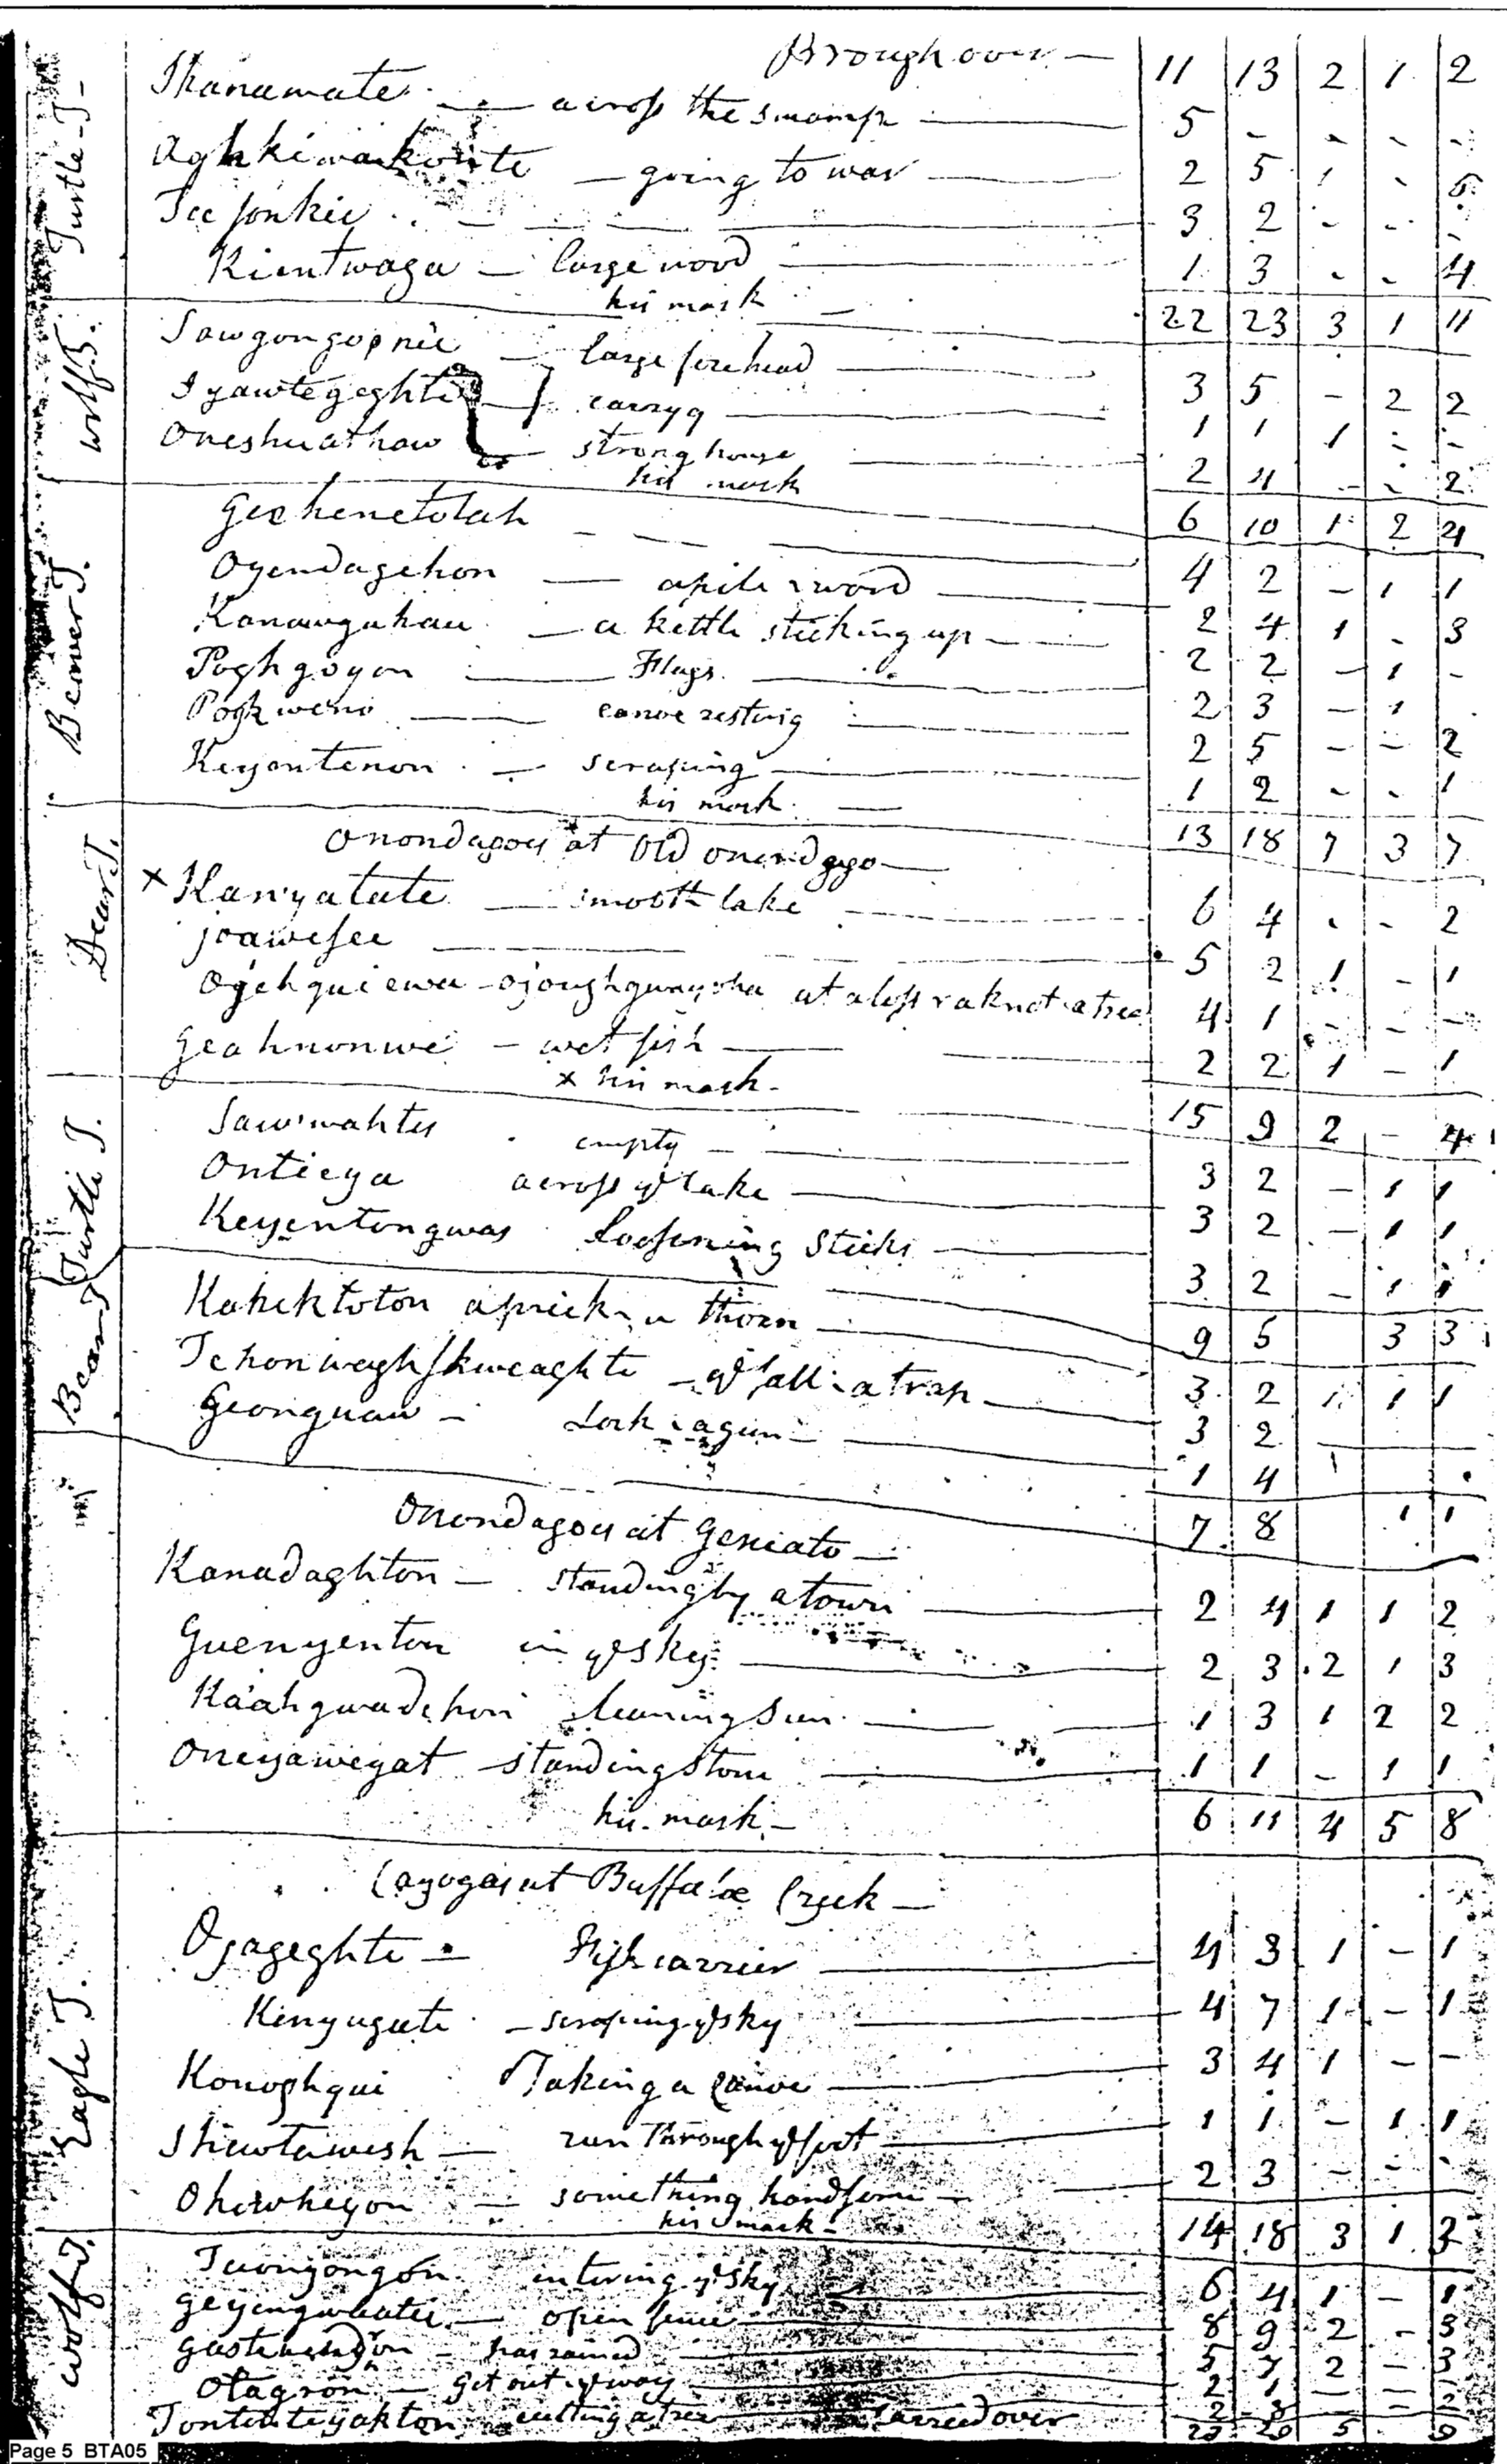 Brough over — 11 13 2 1 2
Skanawate — across the swamp — 5 - - - -
Aghkiwarkonte — going to war — 2 5 1 - 5
Teejonkie — 3 2 - - -
Kientwaga — large wood — 1 3 - - 4
his mark — 22 23 3 1 11
Turtle T-
Sawgongopnie — large forehead — 3 5 - 2 2
Iyawtegeghte — carryg — 1 1 1 - -
Oneshuathaw — strong house — 2 4 - - 2
his mark 6 10 1 2 4
wolf T.
Gechenetotah — 4 2 - 1 1
Oyendagehon — a pile wood — 2 4 1 - 3
Kanawgahau — a kettle sticking up — 2 2 - 1 -
Poghgoyon — Flags — 2 3 - 1
Pogkweno — canoe resting — 2 5 - - 2
Keyontenon — scraping — 1 2 - - 1
his mark — 13 18 1 3 7
Beaver T.
Onondagoes at Old onondgago —
x Kanyatate — smooth lake — 6 4 - - 2
joawesee — 5 2 1 - 1
Ogehquiewa - ojoughgwangoha at a tree 4 1 - - -
Geahnonwe — wet fish — 2 2 1 - 1
x his mark — 15 9 2 - 4
Dear T.
Sawwahtes empty — 3 2 - 1 1
Ontieya across ye lake — 3 2 - 1 1
Keyentongwas loosening sticks — 3 2 - 1 1
9 5 3 3
Turtle T.
Kahektoton a prick a thorn — 3 2 1 1 1
Tchonwaghskweaghte — ye fall a trap — 3 2
Geonguaw — Lock a gun — 1 4 1
7 8 1 1
Bear T
Onondagoes at Geneato —
Kanadaghton — standing by a town — 2 4 1 1 2
Guenyenton in ye sky — 2 3 2 1 3
Kaahgwadehon leaning Sun — 1 3 1 2 2
Oneyawegat standing stone — 1 1 - 1 1
his mark — 6 11 4 5 8
Cayogas at Buffaloe Creek —
Ojageghte — Fish carrier — 4 3 1 - 1
Kenyugate — scraping ye sky — 4 7 1 - 1
Konoghqui Taking a Canoe — 3 4 1 - -
Shewtawesh — run Through ye foot — 1 1 - 1 1
Ohewhegon — something handsome — 2 3 - - -
his mark — 14 18 3 1 3
Eagle T.
Tuonyongon entering ye sky — 6 4 1 - 1
Geyengwhatee — open fence — 8 9 2 - 3
— has rained — 5 7 2 - 3
Otagron — Get out ye way — 2 1 - -
Tontetteyakton cutting a tree — Carried over
Wolf T.
Page 5 BTA05